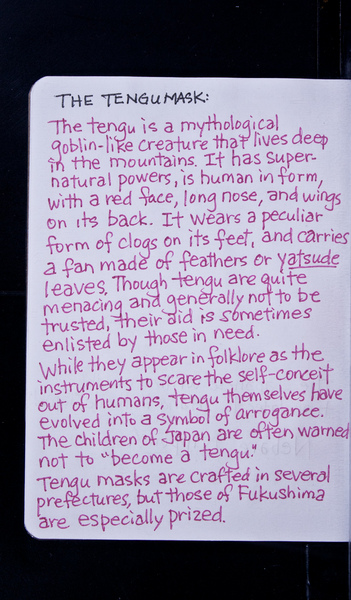 THE TENGU MASK:
The tengu is a mythological
goblin-like creature that lives deep
in the mountains. It has super-
natural powers, is human in form,
with a red face, long nose, and wings
on its back. It wears a peculiar
form of clogs on its feet, and carries
a fan made of feathers or yatsude
leaves. Though tengu are quite
menacing and generally not to be
trusted, their aid is sometimes
enlisted by those in need.
While they appear in folklore as the
instruments to scare the self-conceit
out of humans, tengu themselves have
evolved into a symbol of arrogance.
The children of Japan are often warned
not to "become a tengu."
Tengu masks are crafted in several
prefectures, but those of Fukushima
are especially prized.